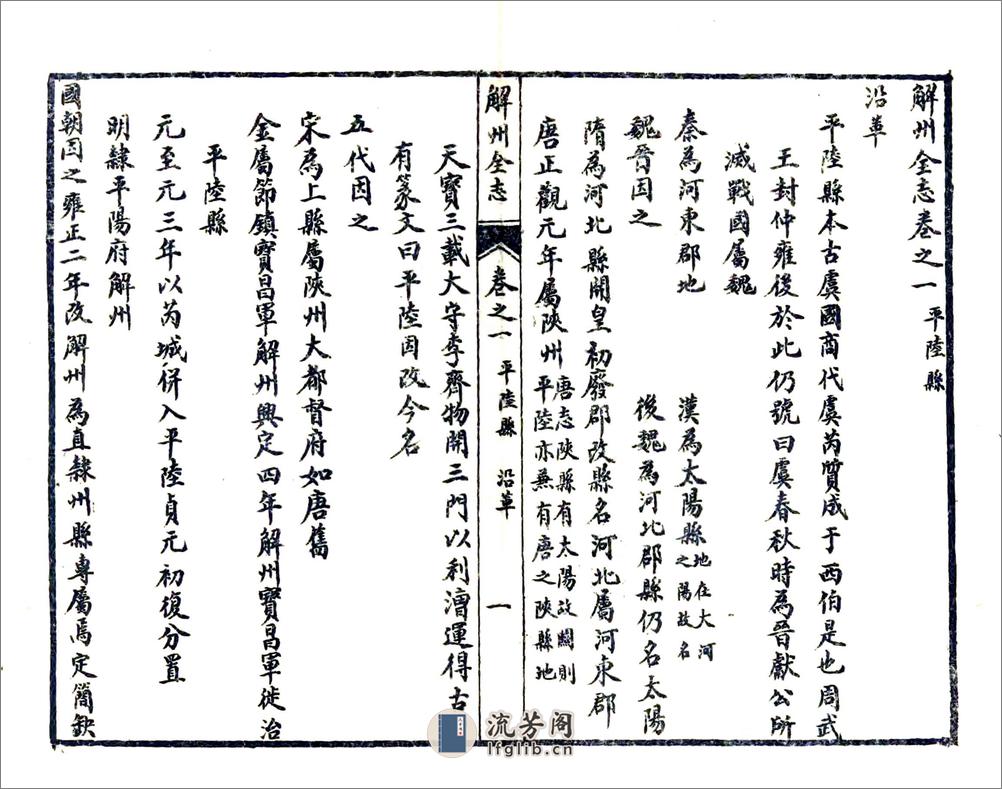 解州全志卷之一 平陸縣
沿革
平陸縣本古虞國商代虞芮質成于西伯是也周武
王封仲雍後於此仍號曰虞春秋時為晉獻公所
滅戰國屬魏
秦為河東郡地 漢為太陽縣地在大河之陽故名
魏晉因之 後魏為河北郡縣仍名太陽
隋為河北縣開皇初廢郡改縣名河北屬河東郡
唐正觀元年屬陝州唐志陝縣有太陽故關則平陸亦兼有唐之陝縣地
解州全志 卷之一 平陸縣 沿革 一
天寶三載大守李齊物開三門以利漕運得古
有篆文曰平陸因改今名
五代因之
宋為上縣屬陝州大都督府如唐舊
金屬節鎮寶昌軍解州興定四年解州寶昌軍徙治
平陸縣
元至元三年以芮城併入平陸貞元初復分置
明隸平陽府解州
國朝因之雍正二年改解州為直隸州縣專屬焉定簡缺
流芳阁
lfglib.cn